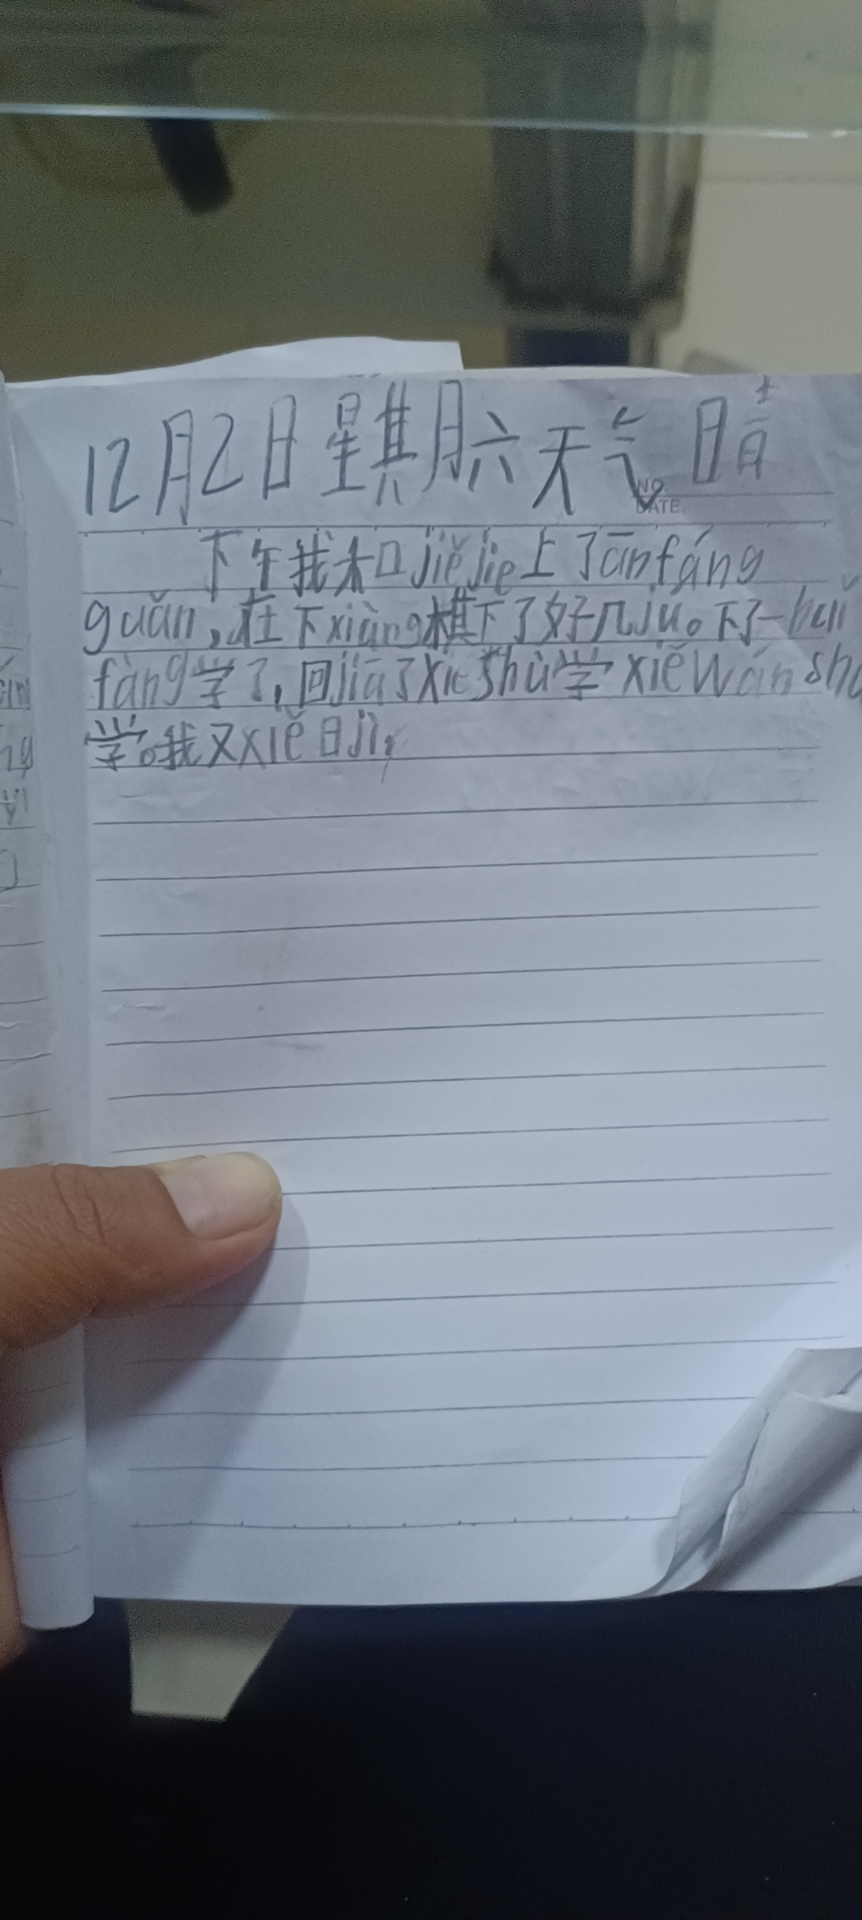 12月2日星期六天气晴
NO.
DATE.
下午我和jiějie上了cānfáng
guǎn,在下xiàng棋下了好几jú。下了一huǐ
fàng学了,回jiā了xiě shù学xiě wán shù
学。我又xiě日jì,